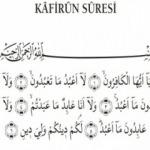 KÂFİRÛN SÛRESİ
اللّٰهِ الرَّحْمٰنِ الرَّحِيمِ
يَا أَيُّهَا الْكَافِرُونَ ﴿١﴾ لَا أَعْبُدُ مَا تَعْبُدُونَ ﴿٢﴾ وَلَا
مَا أَعْبُدُ ﴿٣﴾ وَلَا أَنَا عَابِدٌ مَا عَبَدْتُمْ ﴿٤﴾ وَلَا
عَابِدُونَ مَا أَعْبُدُ ﴿٥﴾ لَكُمْ دِينُكُمْ وَلِيَ دِينِ ﴿٦﴾